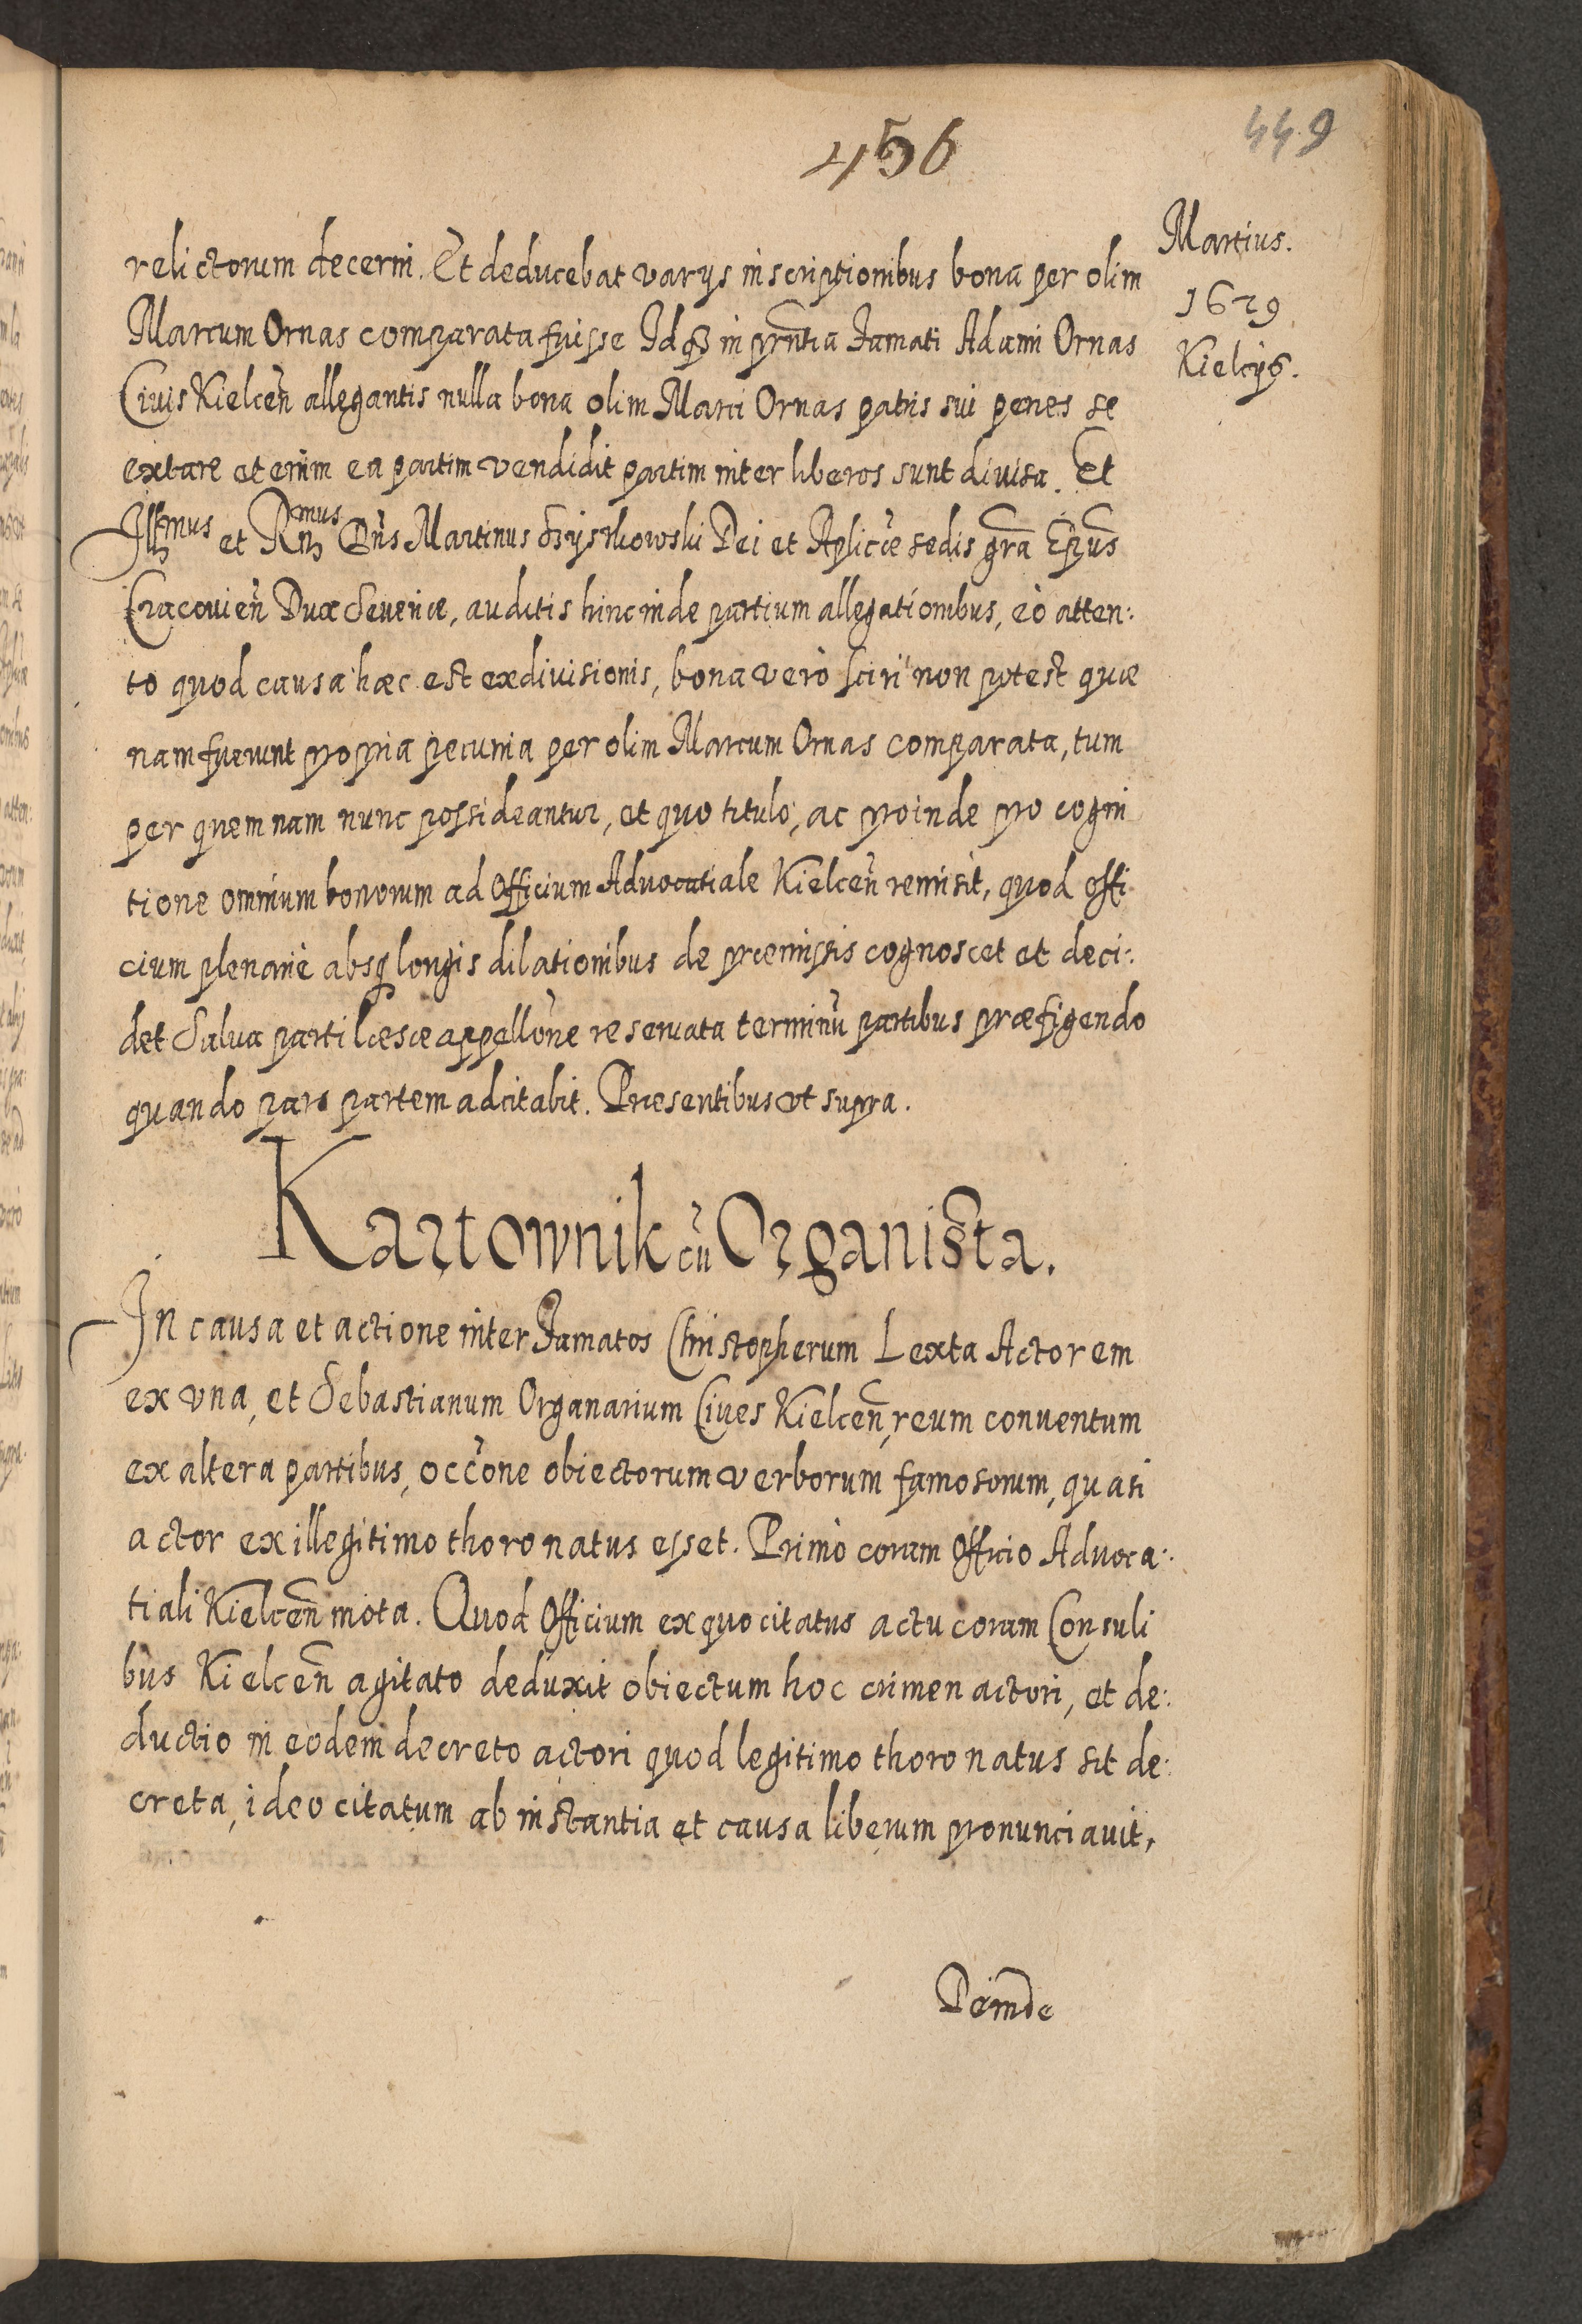 456
449
Martius.
1629
Kielcÿs.
relictorum decerni. Et deducebat varÿs inscriptionibus bona per olim
Marcum Ornas comparata fuisse Idq3 in prñtia Famati Adami Ornas
Civis Kielceñ allegantis nulla bona olim Marci Ornas patris sui penes se
extare etenim ea partim vendidit partim inter liberos sunt divisa. Et
Illmus et Rmus Dñs Martinus Szÿszkowski Dei et Aplicæ sedis gra Epus
Cracovieñ Dux Severiæ, auditis hinc inde partium allegationibus, eò atten:
to quod causa hæc est ex divisionis, bona verò sciri non potest quæ
nam fuerunt propria pecunia per olim Marcum Ornas comparata, tum
per quem nam nunc possideantur, et quo titulo, ac proinde pro cogni
tione omnium bonorum ad Officium Advocatiale Kielceñ remisit, quod offi
cium plenariè absq longis dilationibus de præmissis cognoscet et deci:
det Salva parti læsæ appellõne reservata terminũ partibus præfigendo
quando pars partem adcitabit. Præsentibus vt supra.
Kartownik cũ Organista.
In causa et actione inter Famatos Christopherum Lexta Actorem
ex vna, et Sebastianum Organarium Cives Kielceñ, reum conventum
ex altera partibus, occõne obiectorum verborum famosorum, quasi
actor ex illegitimo thoro natus esset. Primò coram Officio Advoca:
tiali Kielceñ mota. Quod Officium ex quo citatus actu coram Consuli
bus Kielceñ agitato deduxit obiectum hoc crimen actori, et de:
ductio in eodem decreto actori quod legitimo thoro natus sit de:
creta, ideo citatum ab instantia et causa liberum pronunciavit,
Deinde